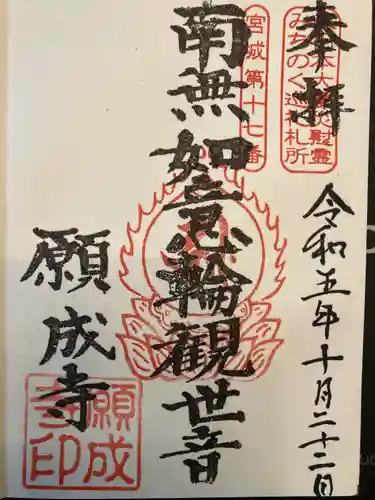 奉拝
東日本大震災慰霊
みちのく巡礼札所
令和五年十月二十二日
宮城第十七番
南無如意輪観世音
願成寺
願成
寺印